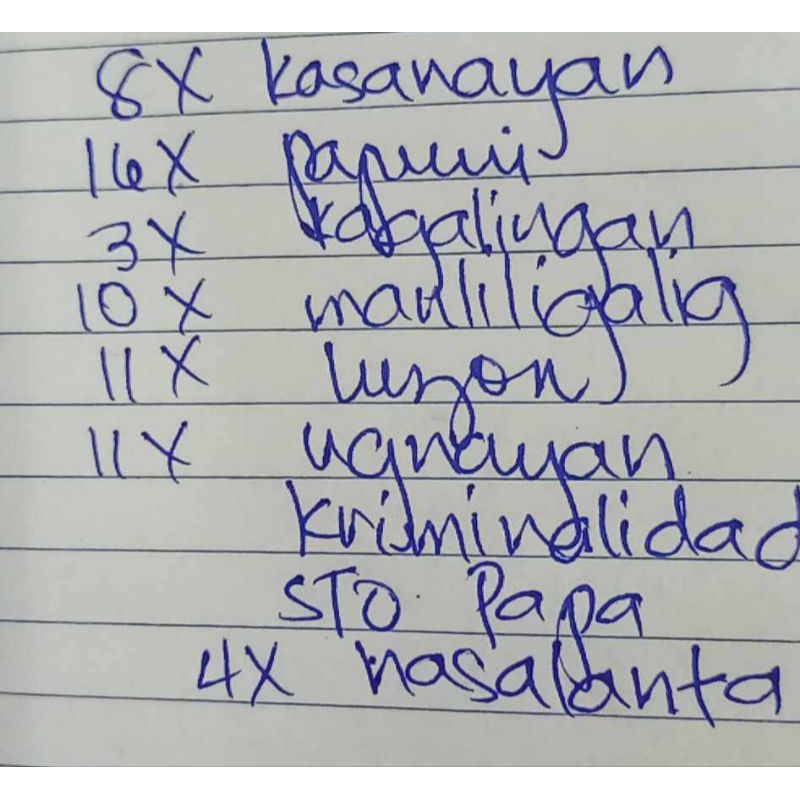 8X kasanayan
16X papuri
3X kagalingan
10X manliligalig
11X luzon
11X ugnayan
kriminalidad
STO. Papa
4X nasalanta